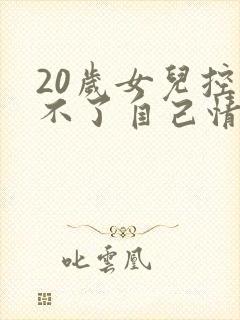 20歲女兒控
不了自己情
叱雲凰